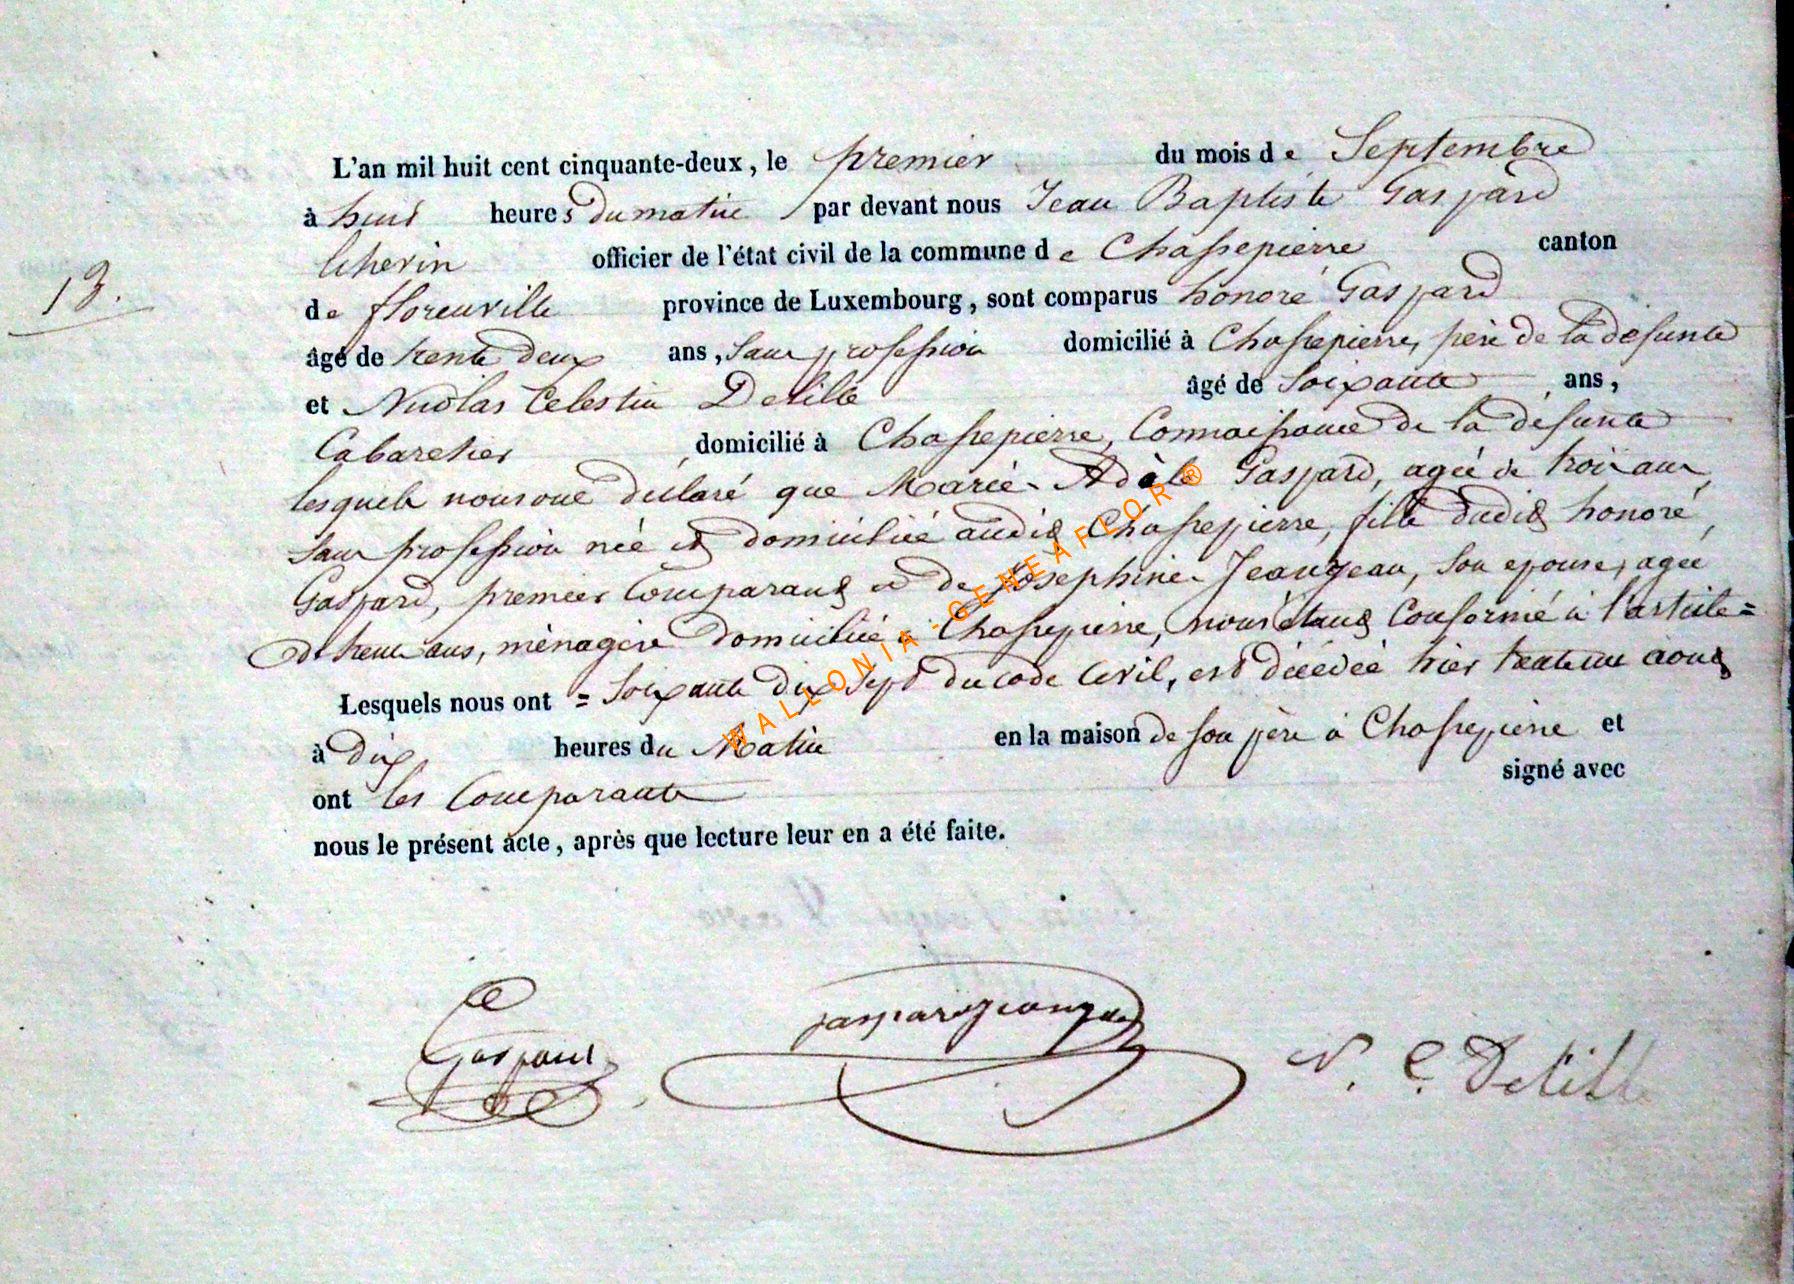 L'an mil huit cent cinquante-deux, le premier du mois de Septembre
à huit heures du matin par devant nous Jean Baptiste Gaspard
officier de l'état civil de la commune de Chassepierre canton
13.
de florenville province de Luxembourg, sont comparus honoré Gaspard
âgé de trente deux ans, sans profession domicilié à Chassepierre, père de la défunte
et Nicolas Celestin Delille âgé de soixante ans,
Cabaretier domicilié à Chassepierre, Connaissance de la défunte
lesquels nous ont déclaré que Marie-Adèle Gaspard, agée de trois ans,
sans profession née et domiciliée audit Chassepierre, fille dudit honoré
Gaspard, premier Comparant et de Josephine Jeangeau, son epouse, agée
de trente ans, ménagère domiciliée à Chassepierre, nous étant Conformé à l'article =
Lesquels nous ont = soixante dix sept du code Civil, est décédée hier trente un août
à dix heures du Matin en la maison de son père à Chassepierre et
ont les Comparants signé avec
nous le présent acte, après que lecture leur en a été faite.
Gaspard
N. C. Delille
WALLONIA-GENEAFLOR®